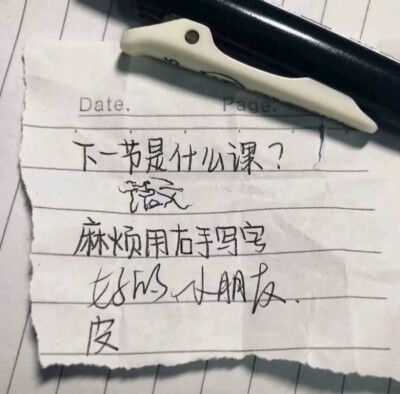 Date. Page.
下一节是什么课？
语文
麻烦用右手写字
好的,小朋友.
皮